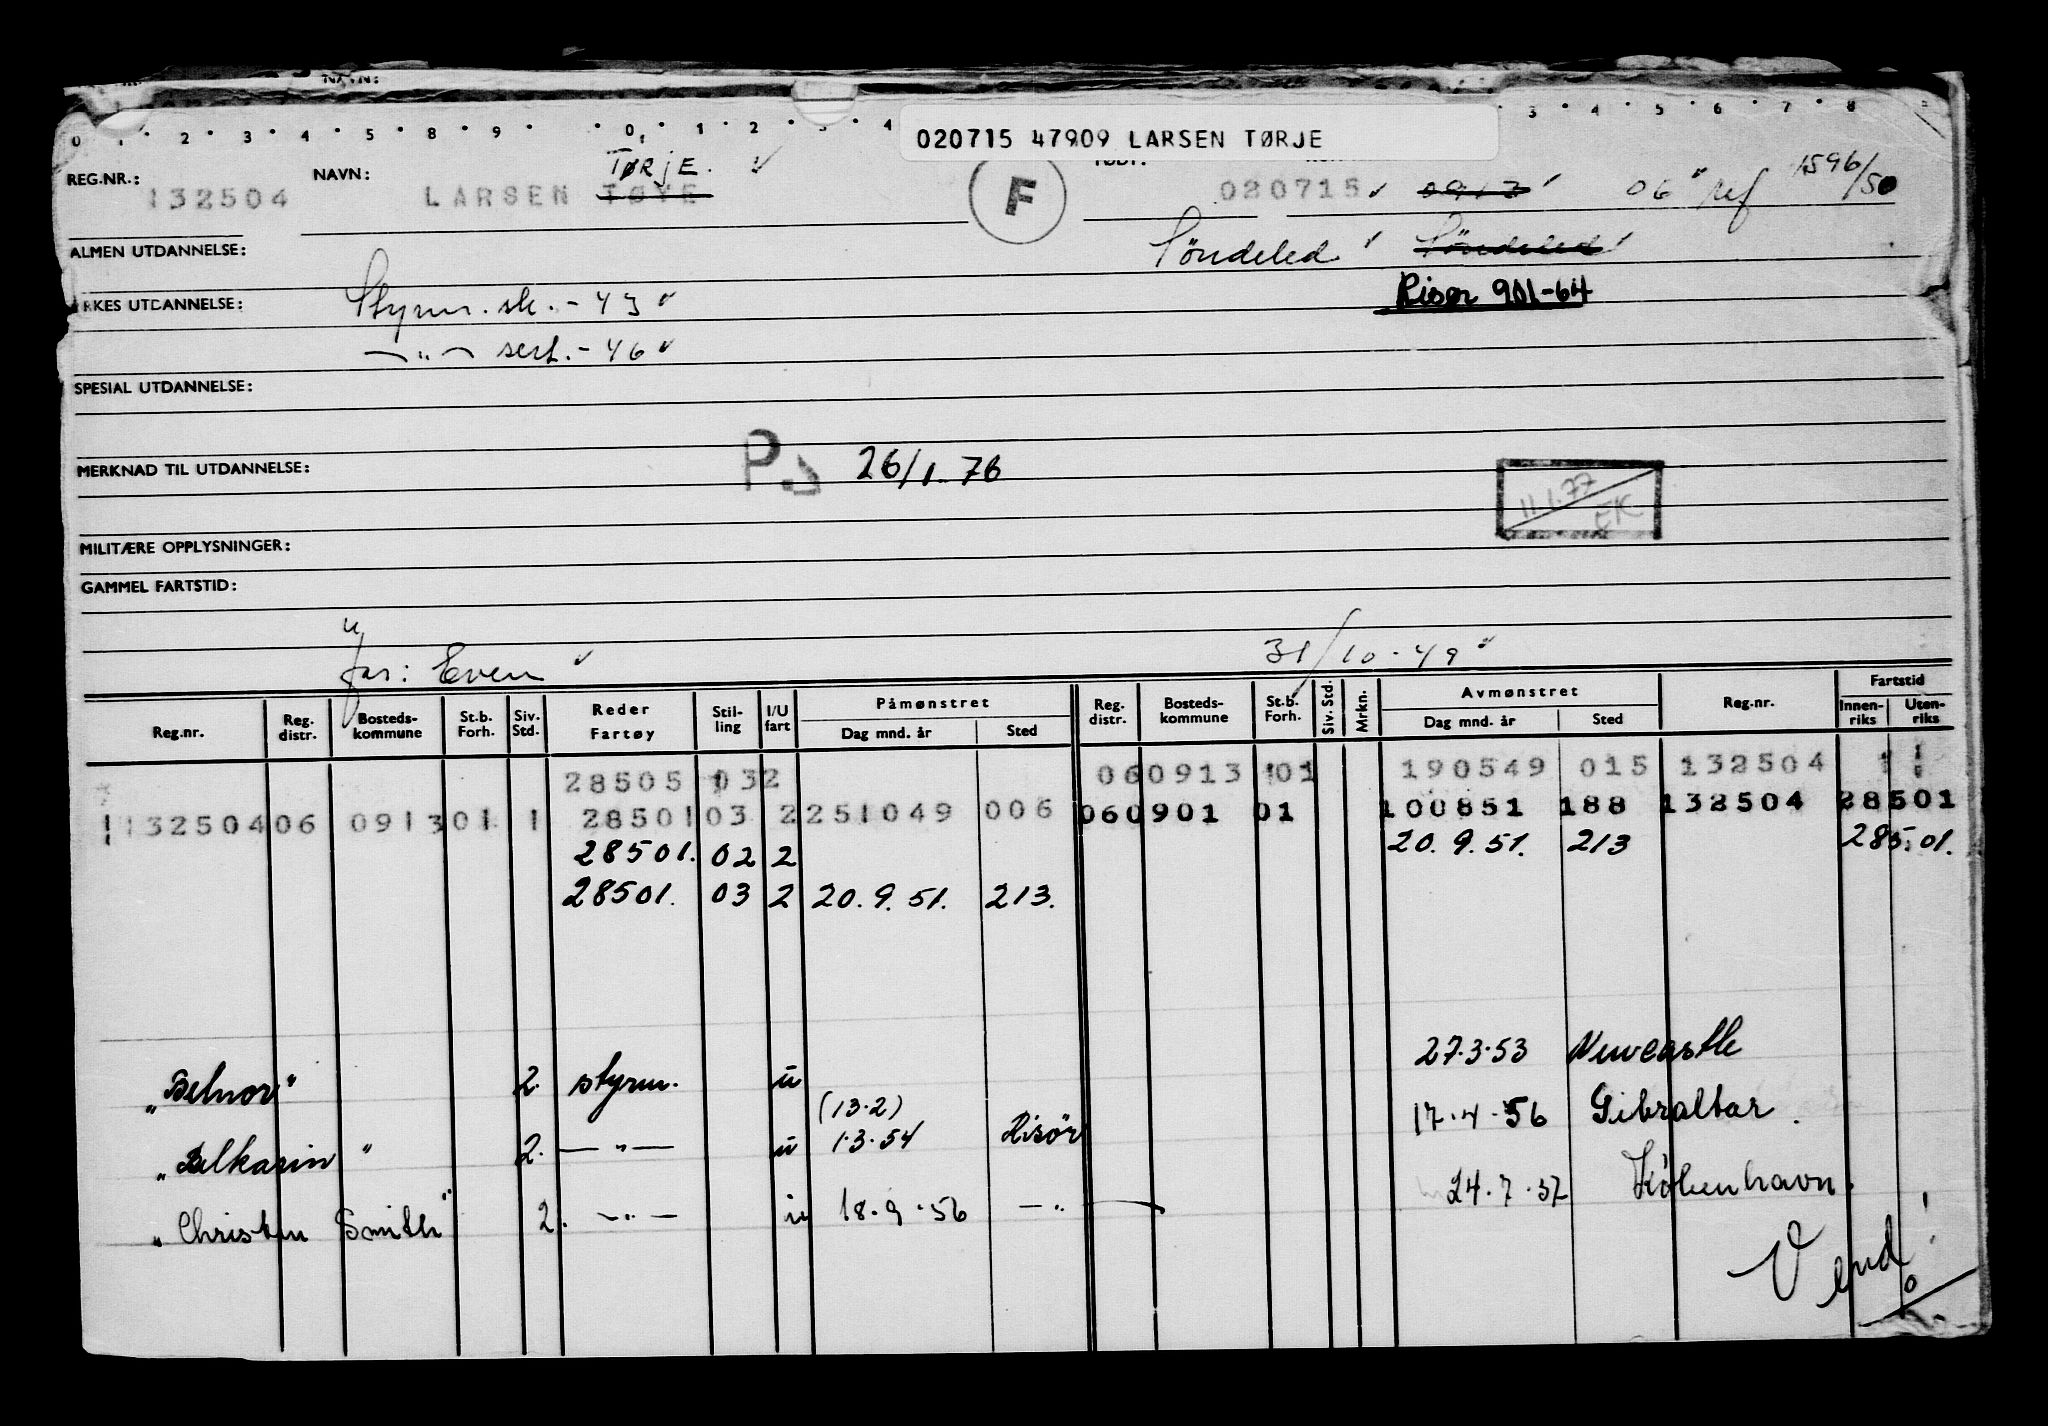 NAVN:
020715 47909 LARSEN TØRJE
REG.NR.: 132504 NAVN: LARSEN TØYE TØRJE. F 020715 0913 06 ref 1596/50
ALMEN UTDANNELSE: Söndeled Söndeled
YRKES UTDANNELSE: Styrm. sk. - 43 Risør 901-64
—"— sert. - 46
SPESIAL UTDANNELSE:
MERKNAD TIL UTDANNELSE: P. 26/1-76
11.1.77 EK
MILITÆRE OPPLYSNINGER:
GAMMEL FARTSTID:
u
far: Even 31/10-49
Reg.nr. Reg. distr. Bosteds- kommune St.b. Forh. Siv. Std. Reder Fartøy Stil- ling I/U fart Påmønstret Dag mnd. år Sted Reg. distr. Bosteds- kommune St.b. Forh. Siv. Std. Mrkn. Avmønstret Dag mnd. år Sted Reg.nr. Fartstid Innen- riks Uten- riks
28505 032 060913 01 190549 015 132504
132504 06 0913 01 1 28501 03 2 251049 006 060901 01 100851 188 132504 28501
28501. 02 2 20.9.51. 213 285.01.
28501. 03 2 20.9.51. 213.
"Belnor" 2. styrm. u 27.3.53 Newcastle
"Belkarin" 2. —"— u (13.2) 1.3.54 Risör 17.4.56 Gibraltar.
"Christen Smith" 2. —"— u 18.9.56 —"— 24.7.57 København.
Vend!